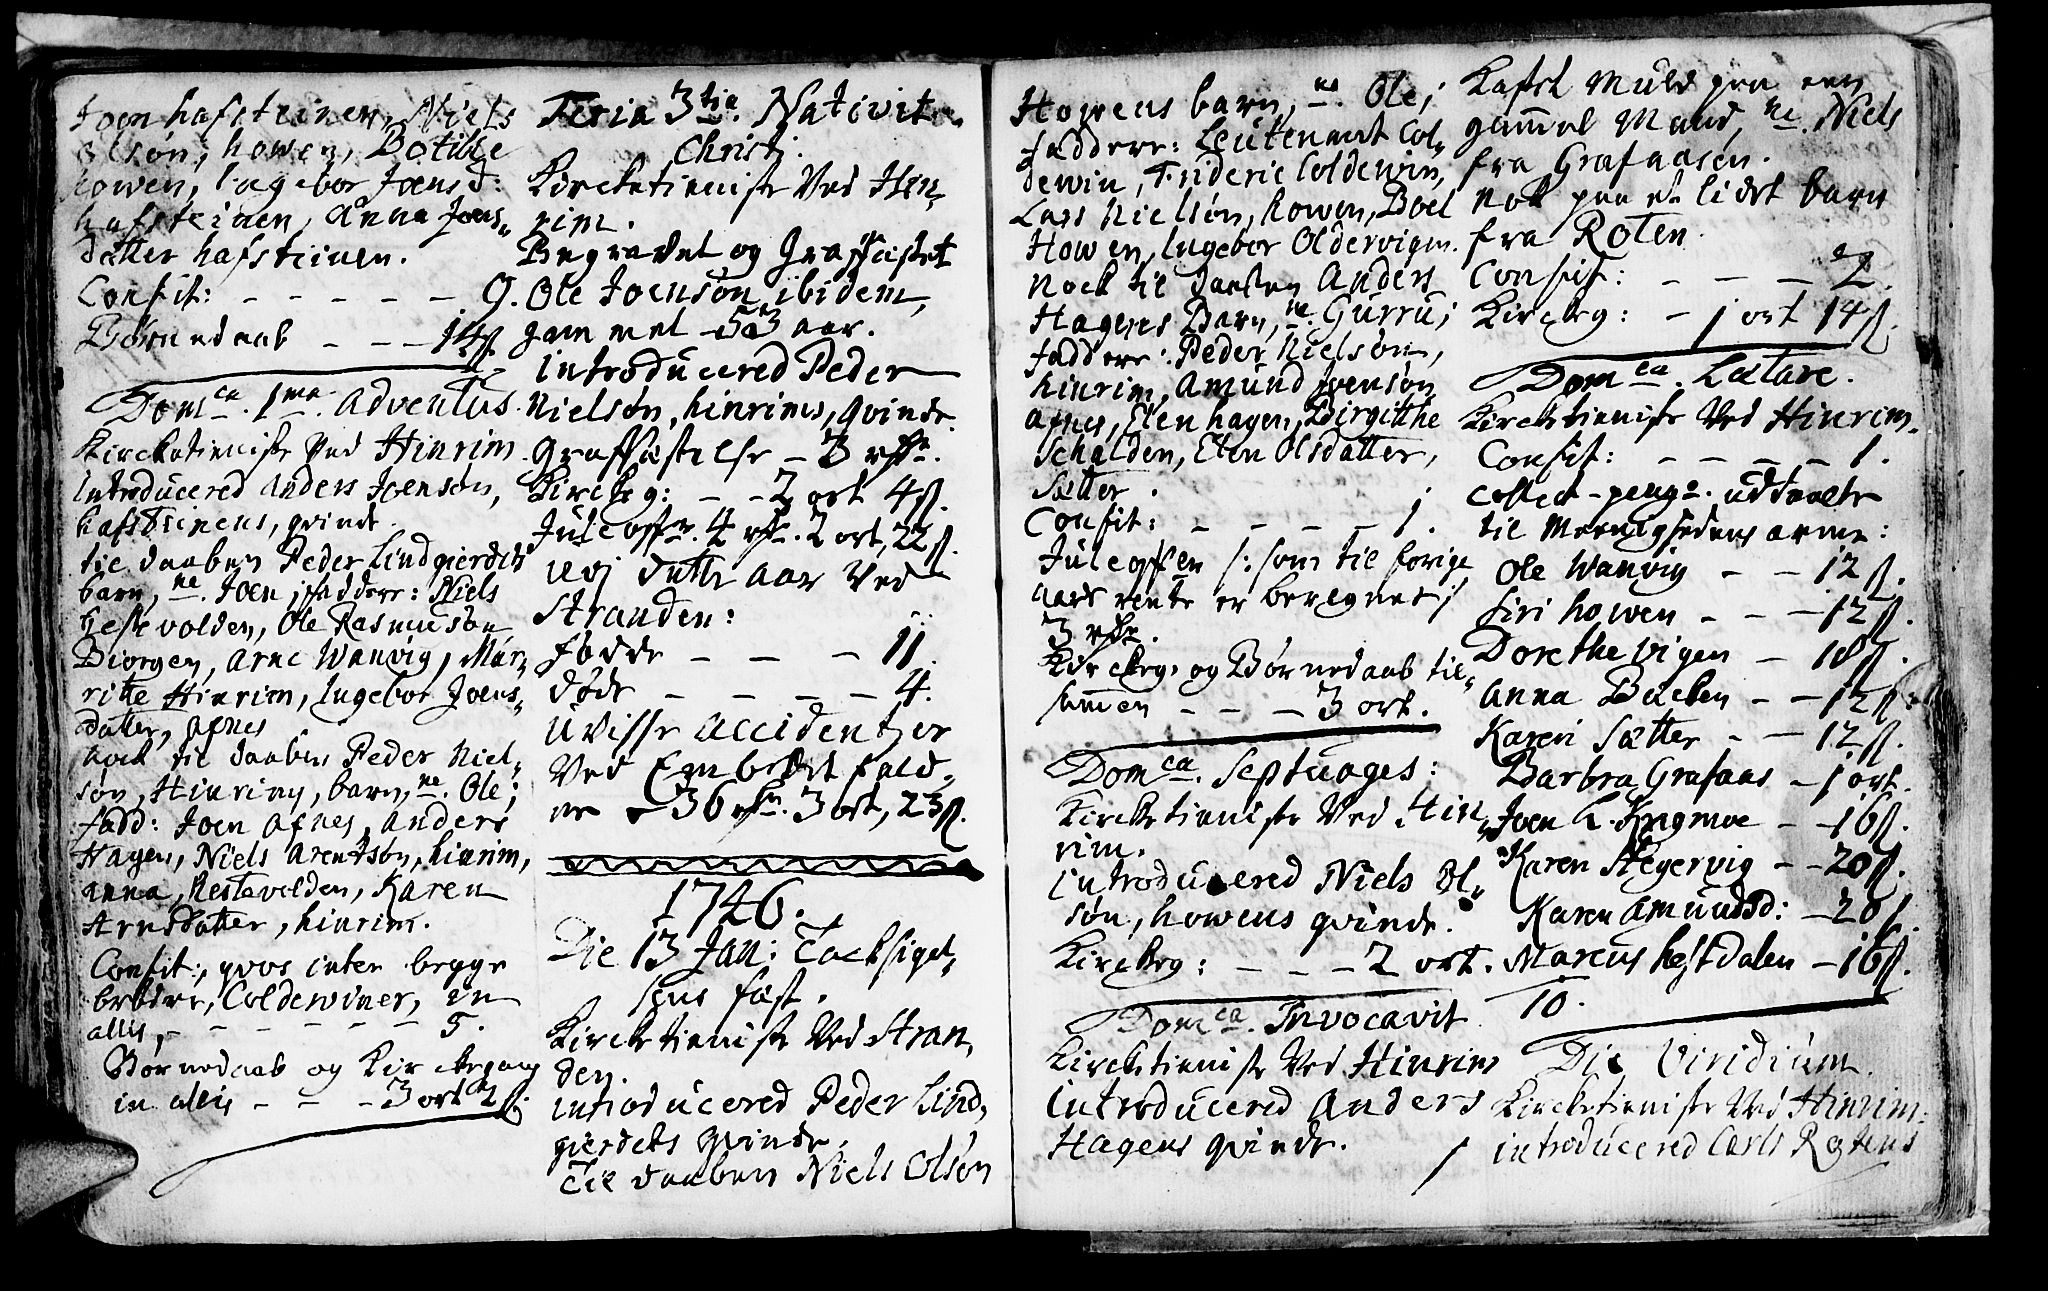 Joen hafsteinen, Niels
Olsøn, howen, Botilde
howen, Ingebor Joensd:
hafsteinen, Anna Joens„
datter hafsteinen.
Confit: – – – – – 9.
Børnedaab – – – 14ß
Dom ca. 1ma. Adventus.
Kircketieniste Ved Hinrim.
introducered Anders Joensøn,
hafsteinens, qvinde.
til daaben Peder Lindgierdets
barn, ne. Joen; faddere: Niels
hestevolden, Ole Rasmusøn
Biørgen, Arne Wanvig, Mar„
ritte Hinrim, Ingebor Joens„
datter, Afnes
nock til daaben Peder Niel„
søn, Hinrims, barn, ne. Ole;
fadd: Joen Afnes, Anders
Hagen, Niels Arentsøn, hinrim,
Anna, Hestevolden, Karen
Arnsdatter, hinrim.
Confit:, qvos inter begge
brødre, Coldewiner, in
allis, – – – – – – 5.
Børnedaab og Kirckegang
in allis – – – 3 ort 2ß.
Feria 3tia. Nativit.
Christi.
Kircketieniste Ved Hin„
rim.
Begravet og Graffæstet
Ole Joensøn ibidem,
gammel 53 aar.
introducered Peder
Nielsøn, hinrims, qvinde.
Graffæstelse – 3 rdr.
Kirckg: – – 2 ort 4ß.
Juleoffer. 4 rdr. 2 ort, 22ß.
udj dette aar Ved
Stranden:
fødde – – – 11.
døde – – – – 4.
Uvisse accidentzer
Ved Embedet fald„
ne – 36 rdr. 3 ort, 23ß.
1746.
Die 13 Jan: Tacksigel„
sens fæst.
Kircketieniste Ved Stran„
den.
introducered Peder Lind„
gierdets qvinde.
Til daaben Niels Olsøn
Howens barn, ne. Ole;
faddere: Leutenant Col„
dewin, Frideric Coldewin,
Lars Nielsøn, howen, Boel
Howen, Ingebor Oldervigen.
Nock til daaben Anders
Hagens Barn, ne. Gurru;
faddere: Peder Nielsøn,
hinrim, Amund Joensøn
Afnes, Elen hagen, Birgitthe
Schalden, Elen Olsdatter,
Sætter.
Confit: – – – – 1.
Juleoffer /: som til forige
aars rente er beregnet :/
3 rdr.
Kirckeg. og Børnedaab til„
sammen – – – 3 ort.
Dom ca. Septuages:
Kircketieniste Ved Hin„
rim.
introducered Niels Ol„
søn, howens qvinde.
Kirckeg: – – – 2 ort.
Dom ca. Invocavit.
Kircketieniste Ved Hinrim
introducered Anders
Hagens qvinde.
Kafst Muld paa een
gammel Mand, ne. Niels
fra Grafaasen.
nok paa et lidet barn
fra Roten.
Confit: – – – – 2.
Kirckeg: – 1 ort 14ß.
Dom ca. Lætare.
Kircketieniste Ved Hinrim.
Confit: – – – – – 1.
Collect-penge. uddaelte
til Meenighedens arme:
Ole Wanvig – – 12ß.
Siri howen – – – 12ß.
Dorethe vigen – 18ß.
Anna Backen – – 12ß.
Karen Sætter – – 12ß.
Barbra Grafaas – 1 ort.
Joen L. Kngmoe – – 16ß.
Karen Hegervig – – 20ß.
Karen Amundsd: – 20ß.
Marcus hestdalen – 16ß.
10.
Die Viridium.
Kircketieniste Ved Hinrim.
introducered Carls Rotens